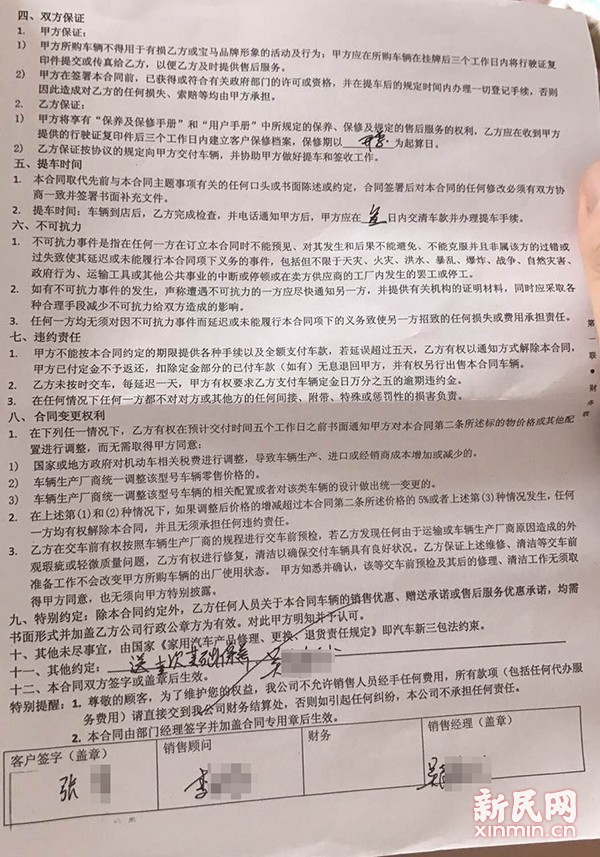 四、双方保证
1. 甲方保证:
1) 甲方所购车辆不得用于有损乙方或宝马品牌形象的活动及行为;甲方应在所购车辆在挂牌后三个工作日内将行驶证复
印件提交或传真给乙方,以便乙方及时提供售后服务。
2) 甲方在签署本合同前,已获得或符合有关政府部门的许可或资格,并在提车后的规定时间内办理一切登记手续,否则
因此造成对乙方的任何损失、索赔等均由甲方承担。
2. 乙方保证:
1) 甲方将享有“保养及保修手册”和“用户手册”中所规定的保养、保修及规定的售后服务的权利,乙方应在收到甲方
提供的行驶证复印件后三个工作日内建立客户保修档案,保修期以 开票 为起算日。
2) 乙方保证按协议的规定向甲方交付车辆,并协助甲方做好提车和签收工作。
五、提车时间
1. 本合同取代先前与本合同主题事项有关的任何口头或书面陈述或约定,合同签署后对本合同的任何修改必须有双方协
商一致并签署书面补充文件。
2. 提车时间:车辆到店后,乙方完成检查,并电话通知甲方后,甲方应在 日内交清车款并办理提车手续。
六、不可抗力
1. 不可抗力事件是指在任何一方在订立本合同时不能预见、对其发生和后果不能避免、不能克服并且非属该方的过错或
过失致使其延迟或未能履行本合同项下义务的事件,包括但不限于天灾、火灾、洪水、暴乱、爆炸、战争、自然灾害、
政府行为、运输工具或其他公共事业的中断或停顿或在卖方供应商的工厂内发生的罢工或停工。
2. 如有不可抗力事件的发生,声称遭遇不可抗力的一方应尽快通知另一方,并提供有关机构的证明材料,同时应采取各
种合理手段减少不可抗力给双方造成的影响。
3. 任何一方均无须对因不可抗力事件而延迟或未能履行本合同项下的义务致使另一方招致的任何损失或费用承担责任。
七、违约责任
1. 甲方不能按本合同约定的期限提供各种手续以及全额支付车款,若延误超过五天,乙方有权以通知方式解除本合同,
甲方已付定金不予返还,扣除定金部分的已付车款(如有)无息退回甲方,并有权另行出售本合同车辆。
2. 乙方未按时交车,每延迟一天,甲方有权要求乙方支付车辆定金日万分之五的逾期违约金。
3. 在任何情况下任何一方都不对对方或其他方的任何间接、附带、特殊或惩罚性的损害负责。
八、合同变更权利
1. 在下列任一情况下,乙方有权在预计交付时间五个工作日之前书面通知甲方对本合同第二条所述标的物价格或其他配
置进行调整,而无需取得甲方同意:
1) 国家或地方政府对机动车相关税费进行调整,导致车辆生产、进口或经销商成本增加或减少的。
2) 车辆生产厂商统一调整该型号车辆零售价格的。
3) 车辆生产厂商统一调整该型号车辆的相关配置或者对该类车辆的设计做出统一变更的。
2. 在上述第(1)和(2)种情况下,如果调整后价格的增减超过本合同第二条所述价格的5%或者上述第(3)种情况发生,任何
一方均有权解除本合同,并且无须承担任何违约责任。
3. 乙方在交车前有权按照车辆生产厂商的规程进行交车前预检,若乙方发现任何由于运输或车辆生产厂商原因造成的外
观瑕疵或轻微质量问题,乙方有权进行修复,清洁以确保交付车辆具有良好状况。乙方保证上述维修、清洁等交车前
准备工作不会改变甲方所购车辆的出厂使用状态。 甲方知悉并确认,该等交车前预检及其后的修理、清洁工作无须取
得甲方同意,也无须向甲方特别披露。
九、特别约定:除本合同约定外,乙方任何人员关于本合同车辆的销售优惠、赠送承诺或售后服务优惠承诺,均需
书面形式并加盖乙方公司行政公章方为有效。对此甲方明知并予认可。
十、其他未尽事宜,由国家《家用汽车产品修理、更换、退货责任规定》即汽车新三包法约束。
十一、其他约定: 送 次基础保养
十二、本合同双方签字或盖章后生效。
特别提醒:1. 尊敬的顾客,为了维护您的权益,我公司不允许销售人员经手任何费用,所有款项(包括任何代办服
务费用)请直接交到我公司财务结算处,否则如引起任何纠纷,本公司不承担任何责任。
2. 本合同由部门经理签字并加盖合同专用章后生效。
客户签字(盖章) 销售顾问 财务 销售经理(盖章)
张 李 吴
第一联•财务联
新民网
xinmin.cn